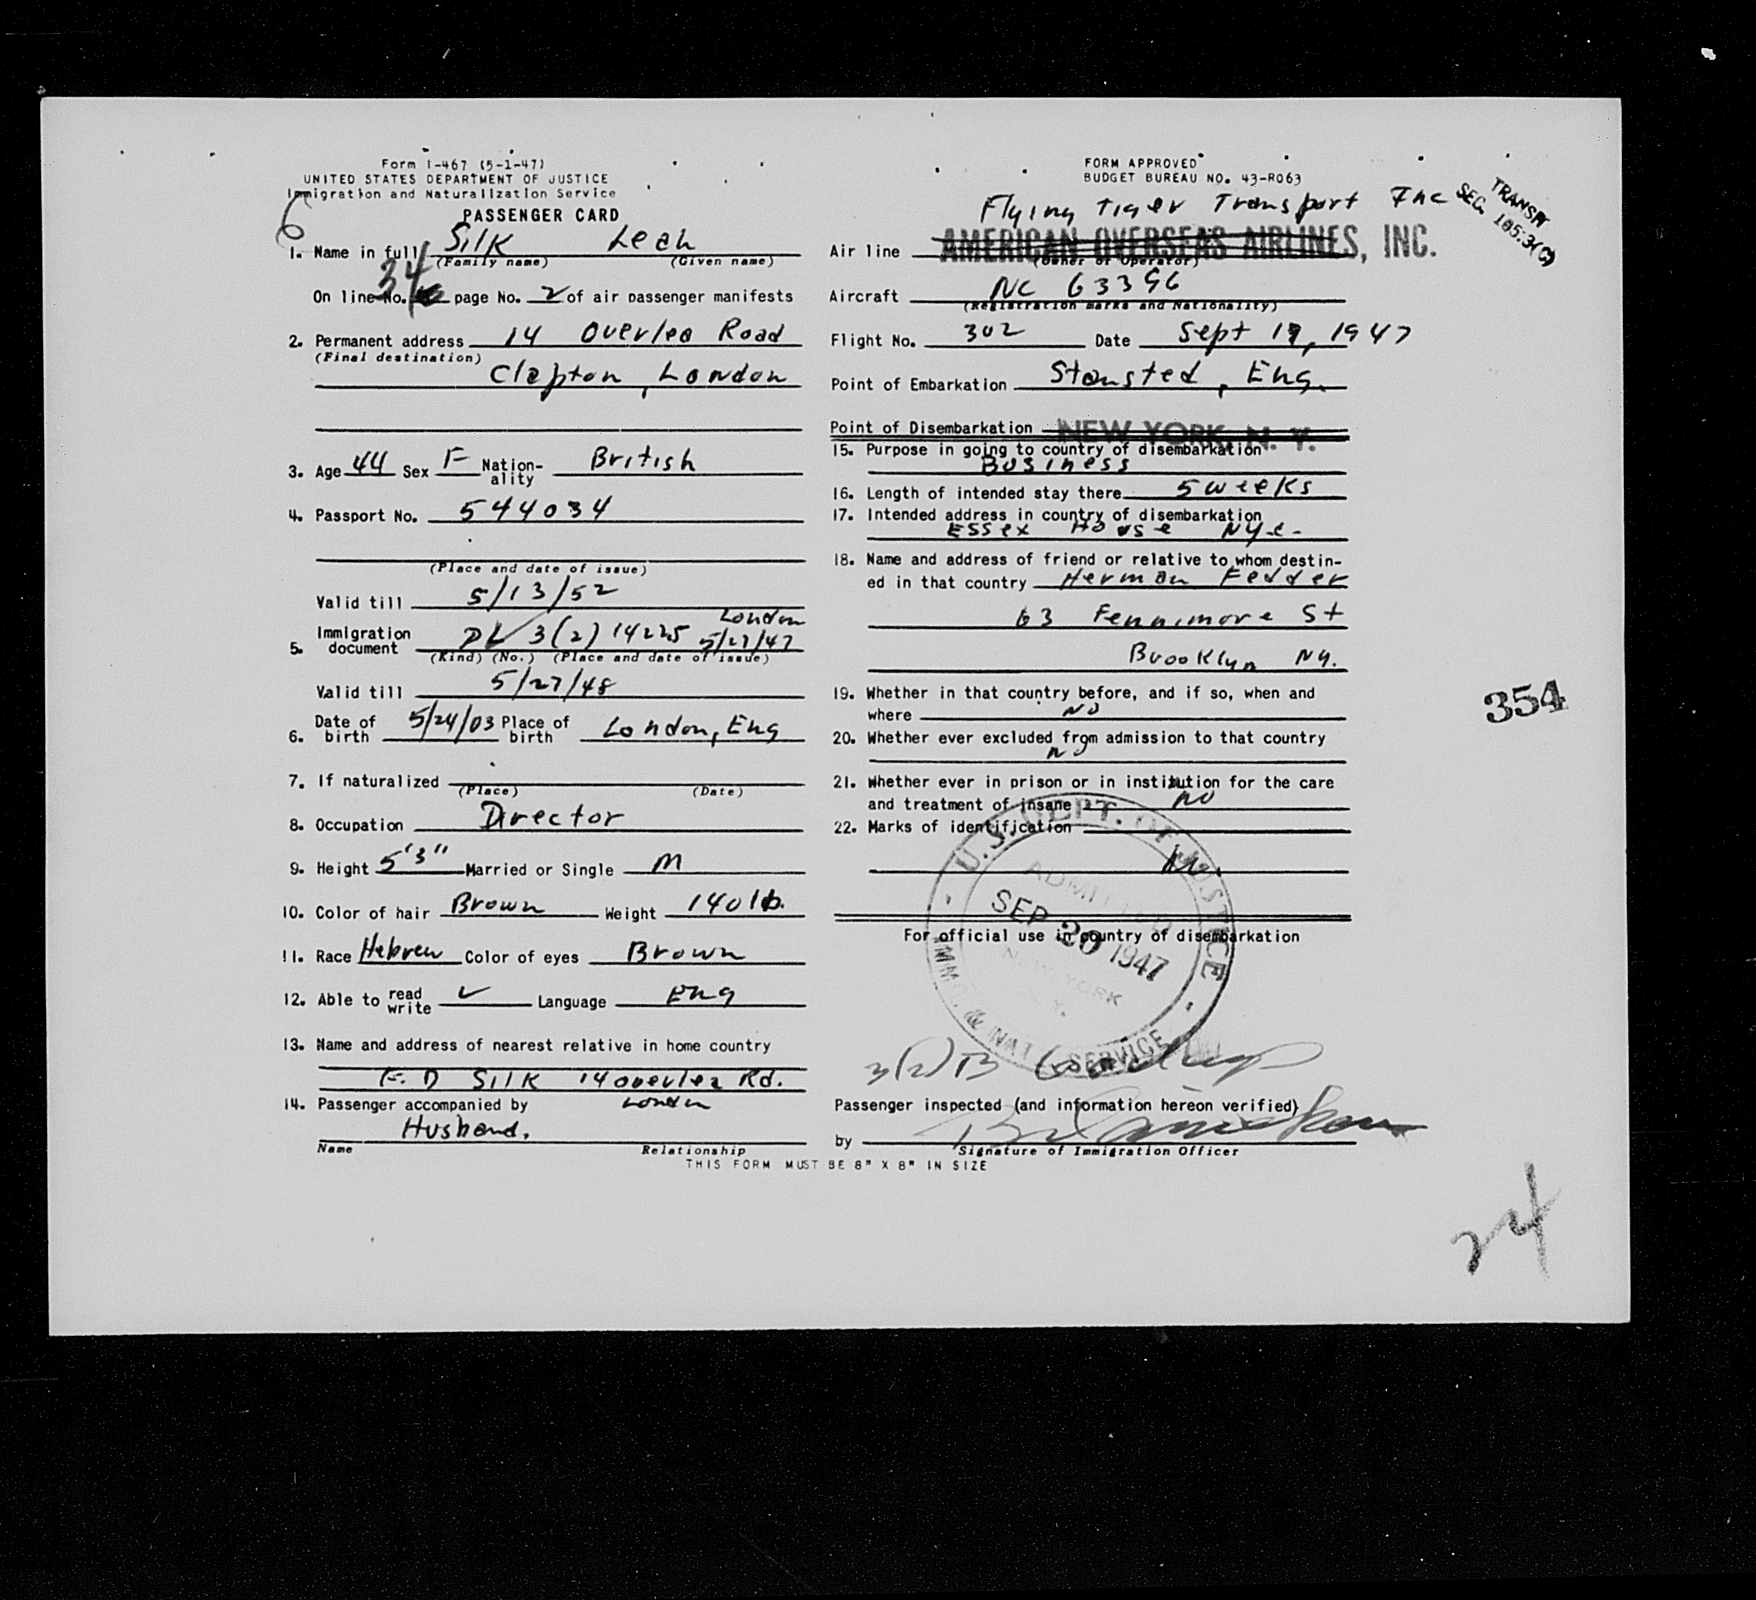 Form I-467 (5-1-47)
UNITED STATES DEPARTMENT OF JUSTICE
Immigration and Naturalization Service
6
PASSENGER CARD
1. Name in full Silk Leah
(Family name) (Given name)
34
On line No. page No. 2 of air passenger manifests
2. Permanent address 14 Overlea Road
(Final destination)
Clapton, London
3. Age 44 Sex F Nation-ality British
4. Passport No. 544034
(Place and date of issue)
Valid till 5/13/52
London
5. Immigration document PL 3(2) 14225 5/27/47
(Kind) (No.) (Place and date of issue)
Valid till 5/27/48
6. Date of birth 5/24/03 Place of birth London, Eng
7. If naturalized
(Place) (Date)
8. Occupation Director
9. Height 5'3" Married or Single M
10. Color of hair Brown Weight 140 lb.
11. Race Hebrew Color of eyes Brown
12. Able to read write ✓ Language Eng
13. Name and address of nearest relative in home country
F. D Silk 14 overlea Rd.
London
14. Passenger accompanied by
Husband.
Name Relationship
THIS FORM MUST BE 8" X 8" IN SIZE
FORM APPROVED
BUDGET BUREAU NO. 43-R063
TRANSIT
SEC. 105.3(C)
Flying Tiger Transport Inc
Air line AMERICAN OVERSEAS AIRLINES, INC.
(Owner or Operator)
Aircraft NC 63396
(Registration marks and Nationality)
Flight No. 302 Date Sept 19, 1947
Point of Embarkation Stansted, Eng.
Point of Disembarkation NEW YORK, N. Y.
15. Purpose in going to country of disembarkation
Business
16. Length of intended stay there 5 weeks
17. Intended address in country of disembarkation
Essex House NYC.
18. Name and address of friend or relative to whom destin-
ed in that country Herman Fedder
63 Fennimore St
Brooklyn NY.
19. Whether in that country before, and if so, when and
where No
20. Whether ever excluded from admission to that country
No
21. Whether ever in prison or in institution for the care
and treatment of insane No
22. Marks of identification
No.
For official use in country of disembarkation
U.S. DEPT. OF JUSTICE
ADMITTED
SEP 20 1947
NEW YORK
IMM. & NAT. SERVICE
3(2) B
Passenger inspected (and information hereon verified)
by
Signature of Immigration Officer
354
24